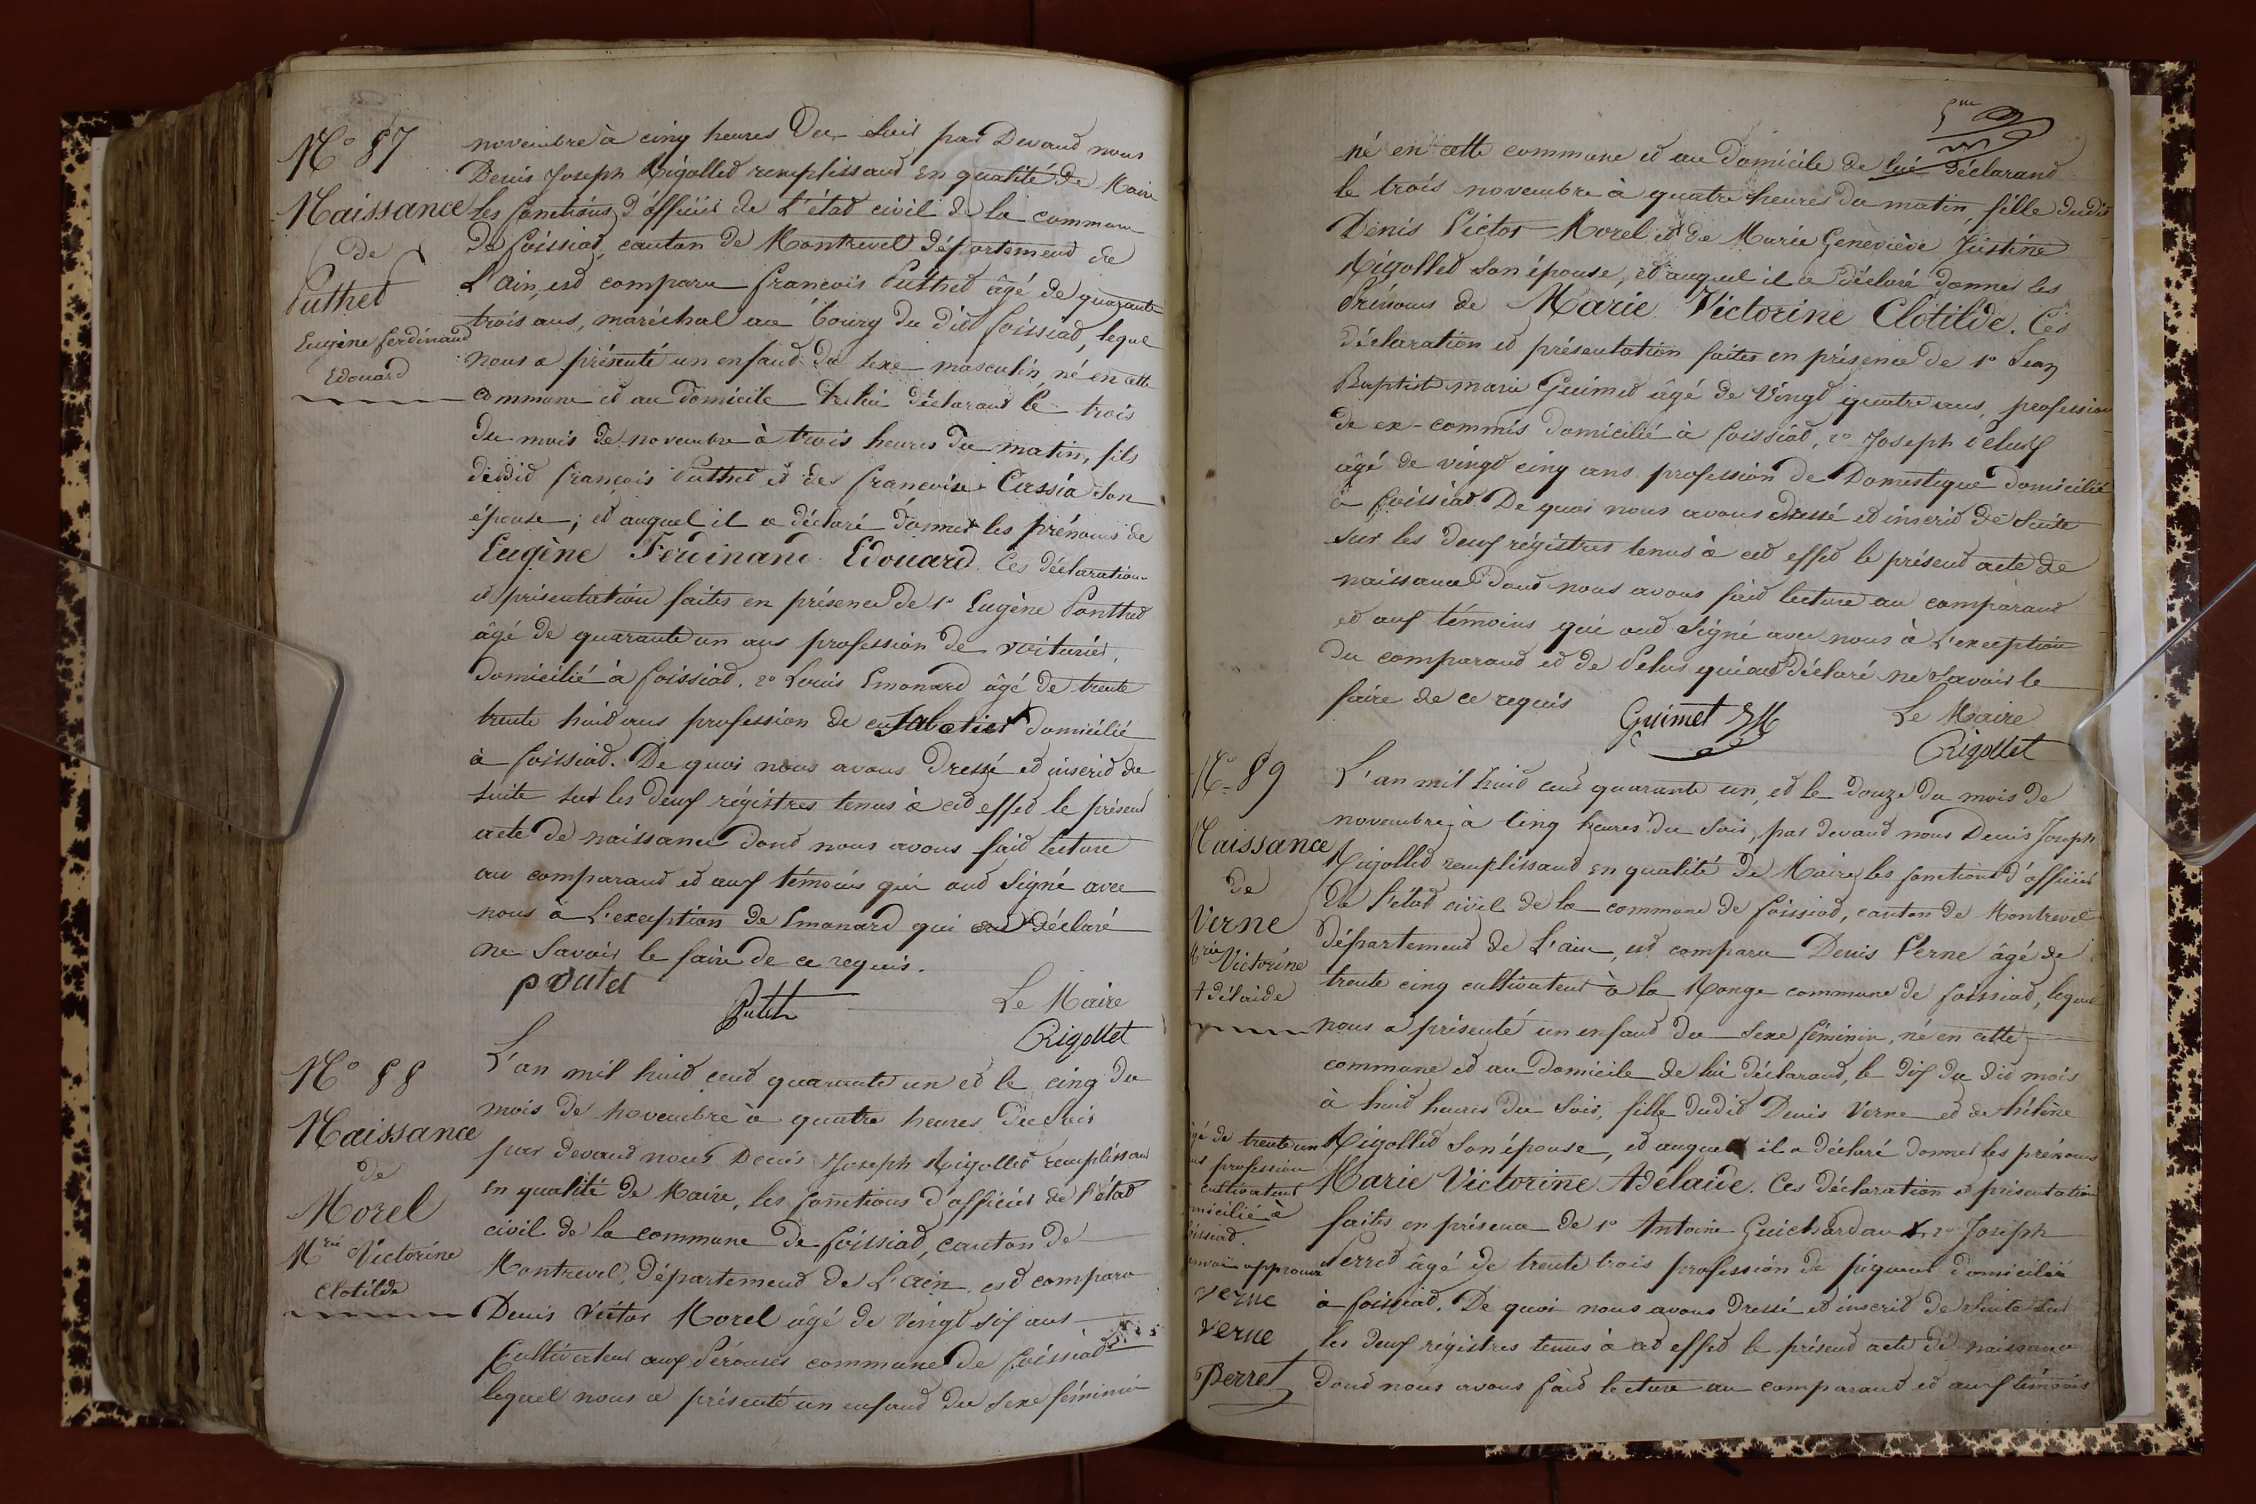 N° 87
Naissance
de
Puthet
Eugène ferdinand
Edouard
novembre à cinq heures du soir par Devant nous
Denis Joseph Rigollet remplissant en qualité de Maire
les fonctions d'officier de L'état civil de la commune
de foissiat, canton de Montrevel département de
L'ain, est comparu françois Puthet âgé de quarante
trois ans, maréchal au bourg du dit foissiat, lequel
nous a présenté un enfant du sexe masculin né en cette
commune et au domicile de lui déclarant le trois
du mois de novembre à trois heures du matin, fils
dudit françois Puthet et de francoise Cassia son
épouse; et auquel il a déclaré donner les prénoms de
Eugène Ferdinand Edouard. Ces déclaration
et présentation faites en présence de 1° Eugène Ponthet
âgé de quarante un ans profession de voiturier,
domicilié à foissiat. 2° Louis Emonard âgé de trente
trente huit ans profession de sabotier domicilié
à foissiat. De quoi nous avons dressé et inscrit de
suite sur les deux régistres tenus à cet effet le présent
acte de naissance dont nous avons fait lecture
au comparant et aux témoins qui ont signé avec
nous à L'exception de Emonard qui a déclaré
ne savoir le faire de ce requis.
poutet
Puteth
Le Maire
Rigollet
N° 88
Naissance
de
Morel
Mrie Victorine
Clotilde
L'an mil huit cent quarante un et le cinq du
mois de novembre à quatre heures du soir
par devant nous Denis Joseph Rigollet remplissant
en qualité de Maire, les fonctions d'officier de l'état
civil de la commune de foissiat, canton de
Montrevel, département de L'ain, est comparu
Denis Victor Morel âgé de vingt six ans
Cultivateur aux Pérouses commune de foissiat
lequel nous a présenté un enfant du sexe féminin
né en cette commune et au domicile de lui déclarant
le trois novembre à quatre heures du matin, fille dudit
Denis Victor Morel et de Marie Geneviève Justine
Rigollet son épouse, et auquel il a déclaré donner les
Prénoms de Marie Victorine Clotilde. Ces
déclaration et présentation faites en présence de 1° Jean
Baptiste marie Guimet âgé de vingt quatre ans, profession
de ex-commis domicilié à foissiat, 2° Joseph Pelus
âgé de vingt cinq ans profession de Domestique domicilié
à foissiat De quoi nous avons dressé et inscrit de suite
sur les deux régistres tenus à cet effet le présent acte de
naissance dont nous avons fait lecture au comparant
et aux témoins qui ont signé avec nous à L'exception
du comparant et de Pelus qui ont déclaré ne savoir le
faire de ce requis
Guimet
Le Maire
Rigollet
N° 89
Naissance
de
Verne
Mrie Victorine
Adélaide
L'an mil huit cent quarante un, et le douze du mois de
novembre, à cinq heures du soir, par devant nous Denis Joseph
Rigollet remplissant en qualité de Maire, les fonctions d'officier
de l'état civil de la commune de foissiat, canton de Montrevel
Département de L'ain, est comparu Denis Verne âgé de
trente cinq cultivateur à la Monge commune de foissiat, lequel
nous a présenté un enfant du sexe féminin, né en cette
commune et au domicile de lui déclarant, le dix du dit mois
à huit heures du soir, fille dudit Denis Verne et de hélène
Rigollet son épouse, et auquel il a déclaré donner les prénoms
Marie Victorine Adelaïde. Ces déclaration et présentation
faites en présence de 1° Antoine Guichardan 2° Joseph
Perret âgé de trente trois profession de domicilié
à foissiat. De quoi nous avons dressé et inscrit de suite sur
les deux régistres tenus à cet effet le présent acte de naissance
dont nous avons fait lecture au comparant et aux témoins
âgé de trente un
ans profession
cultivateur
domicilié à
foissiat.
renvoi approuvé
verne
verne
Perret